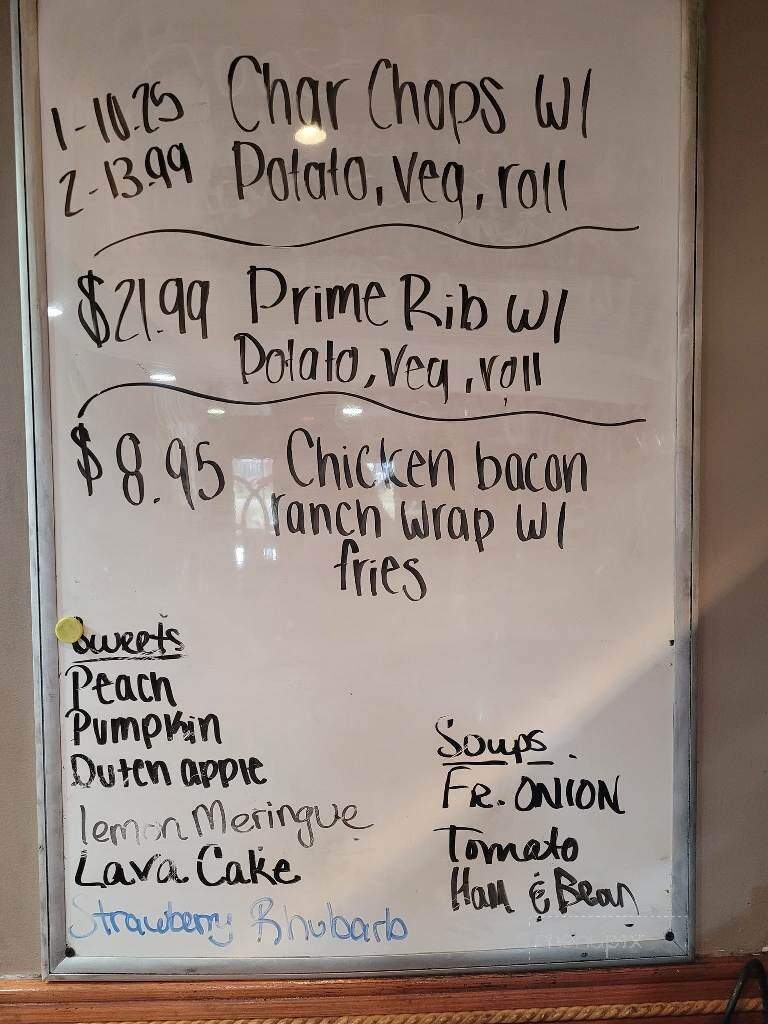 1-10.25 Char Chops w/
2-13.99 Potato, veg, roll
$21.99 Prime Rib w/
Potato, veg, roll
$8.95 Chicken bacon
ranch wrap w/
fries
Sweets
Peach
Pumpkin
Dutch apple
lemon Meringue
Lava Cake
Strawberry Rhubarb
Soups
FR. ONION
Tomato
Ham & Bean